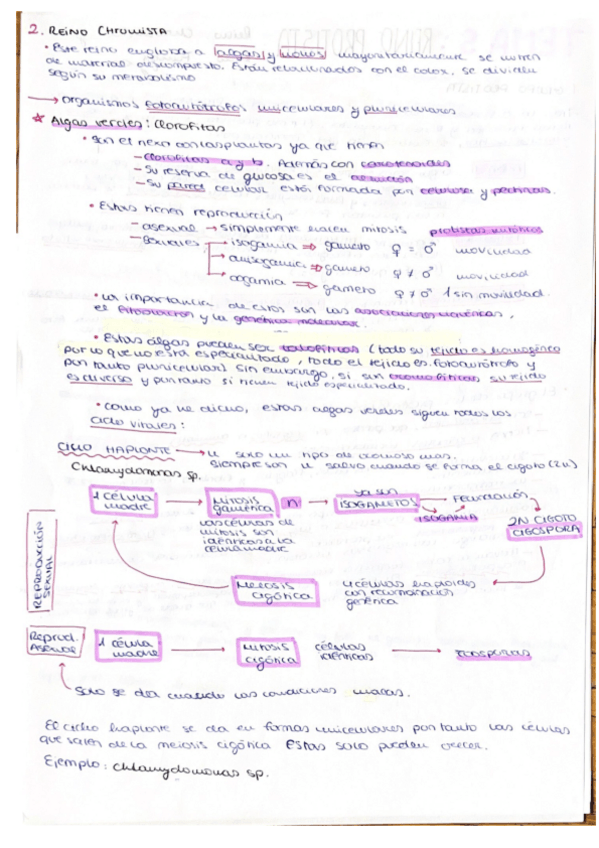 2. REINO CHROMISTA
• Este reino engloba a algas y mohos mayoritariamente se nutren
de material descompuesto. Están relacionados con el color, se dividen
según su metabolismo
→ organismos fotoautótrofos unicelulares y pluricelulares
* Algas verdes: Clorofitas
• Son el nexo con las plantas ya que tienen
– clorofilas a y b. Además con carotenoides
– Su reserva de glucosa es el almidón
– Su pared celular está formada por celulosa y pectinas.
• Estas tienen reproducción
– asexual → simplemente hacen mitosis
– Sexuales → isogamia ⇒ gameto ♀ = ♂ movilidad
→ anisogamia ⇒ gameto ♀ ≠ ♂ movilidad
→ oogamia ⇒ gameto ♀ ≠ ♂ 1 sin movilidad.
• La importancia de estos son las asociaciones liquénicas,
el fitoplancton y la genética molecular.
• Estas algas pueden ser (todo su tejido es homogéneo
por lo que no está especializado, todo el tejido es fotoautótrofo y
por tanto pluricelular) sin embargo, si son su tejido
es diverso y por tanto si tienen tejido especializado.
• Como ya he dicho, estas algas verdes siguen todos los
ciclo vitales:
CICLO HAPLONTE → un solo un tipo de cromosomas.
siempre son salvo cuando se forma el cigoto (2n)
Chlamydomonas sp.
REPRODUCCIÓN SEXUAL
1 célula madre → Mitosis gamética n → ya son ISOGAMETOS → Fecundación
ISOGAMIA
2N CIGOTO CIGOSPORA
Las células de mitosis son idénticas a la célula madre
Meiosis cigótica
4 células haploides con recombinación genética
Reprod. Asexual
1 célula madre → Mitosis cigótica células idénticas → zoosporas
Solo se da cuando las condiciones malas.
El ciclo haplonte se da en formas unicelulares por tanto las células
que salen de la meiosis cigótica Estas solo pueden crecer.
Ejemplo: chlamydomonas sp.